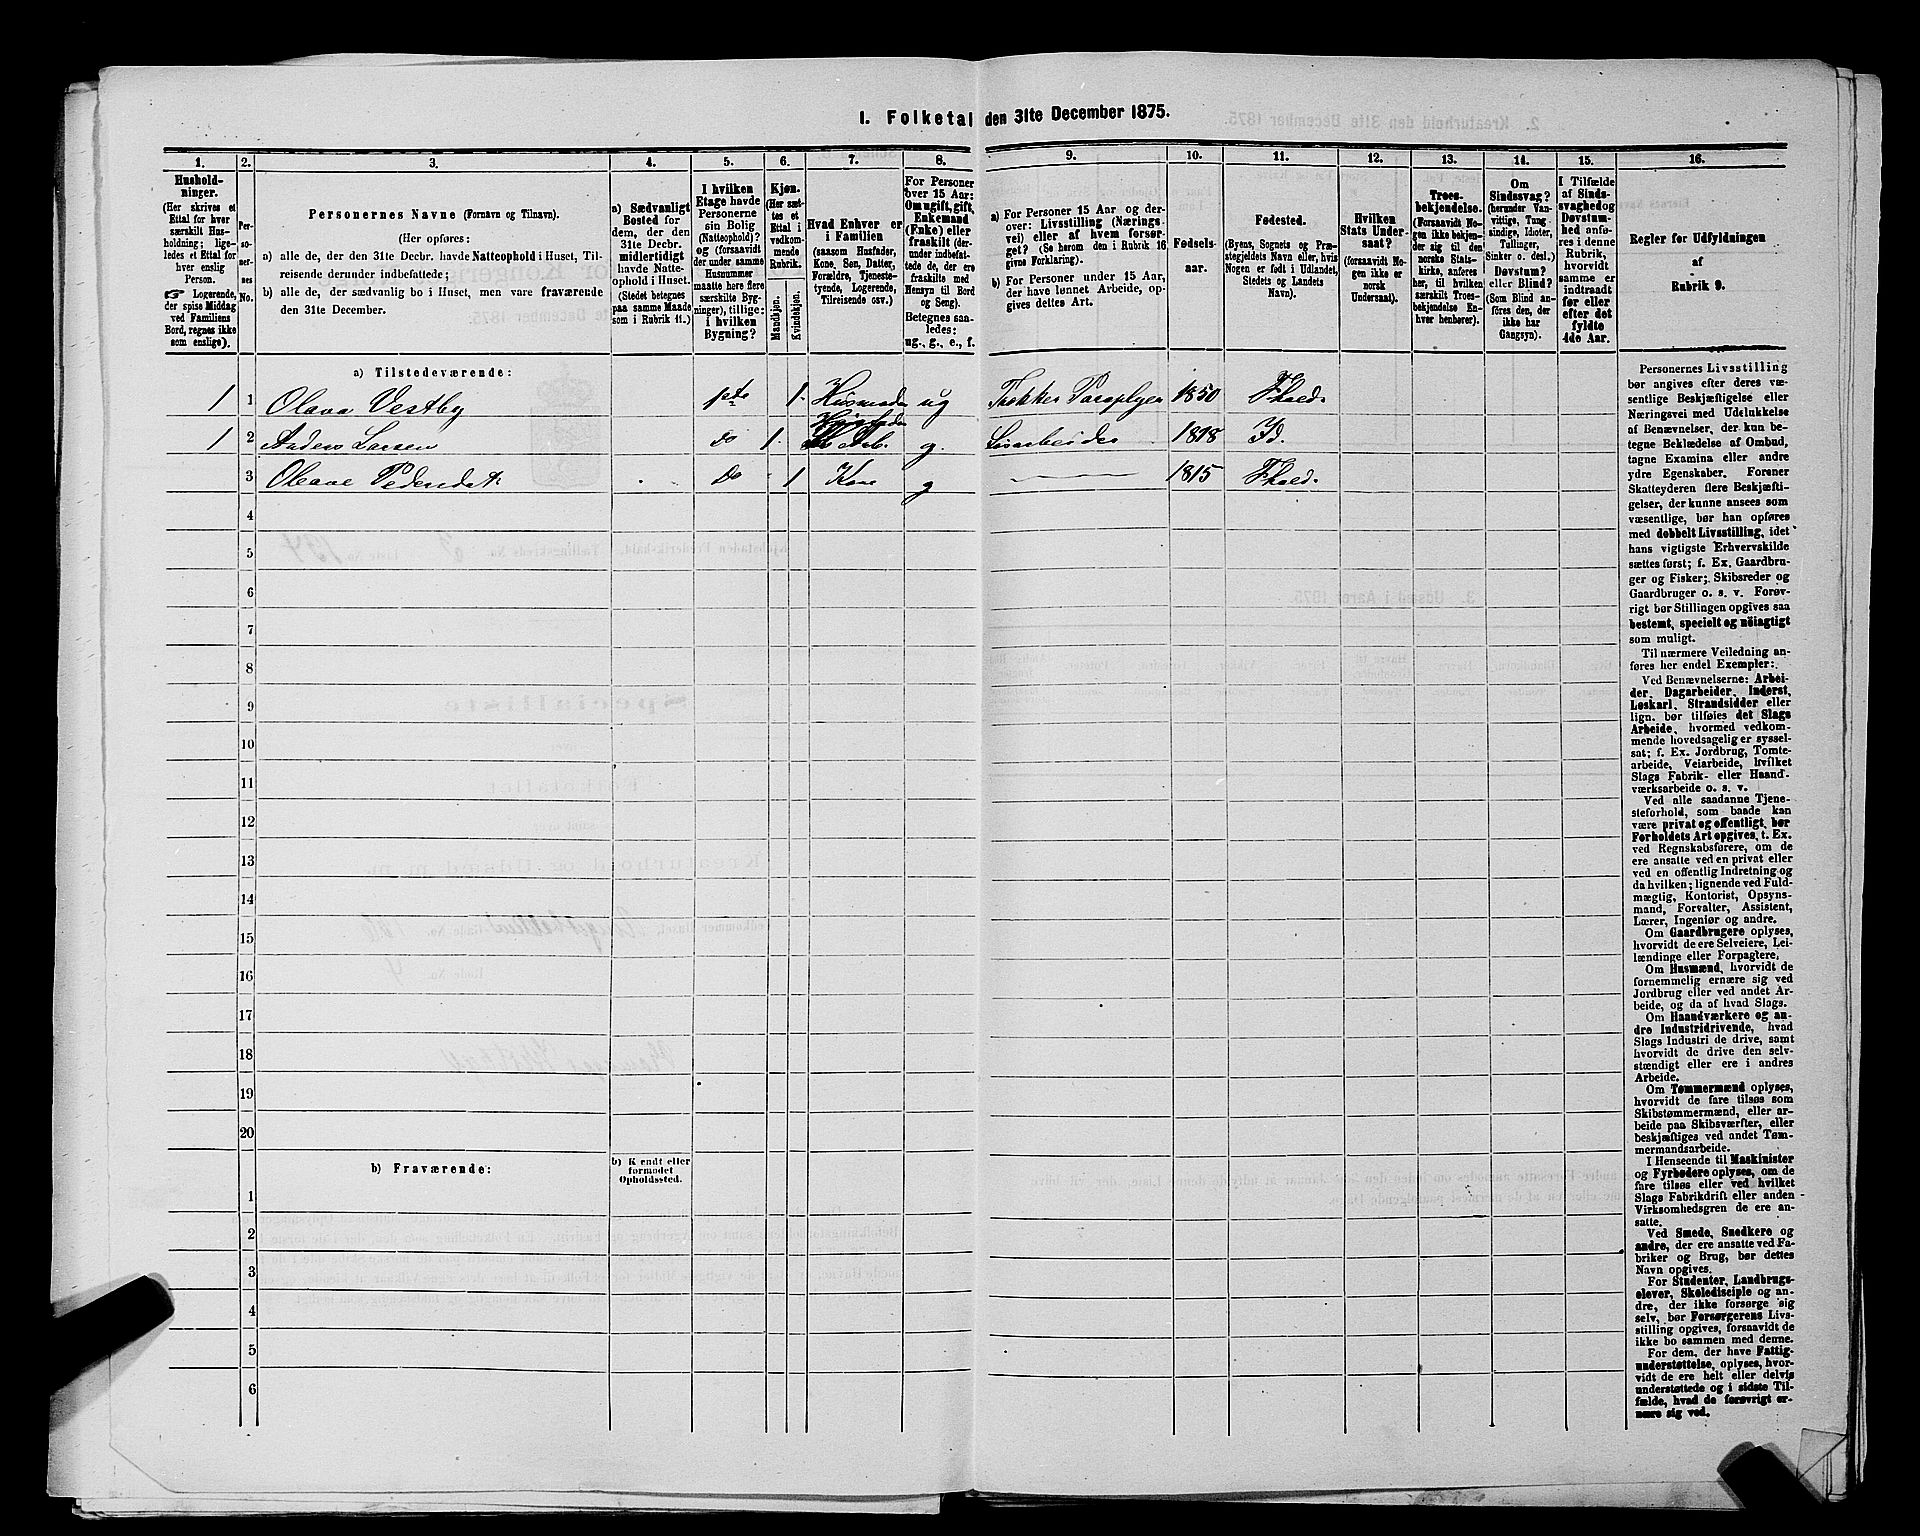 I. Folketal den 31te December 1875.
1. 2. 3. 4. 5. 6. 7. 8. 9. 10. 11. 12. 13. 14. 15. 16.
Hushold-
ninger.
(Her skrives et
Ettal for hver
særskilt Hus-
holdning; lige-
ledes et Ettal for
hver enslig
Person.
☞ Logerende,
der spise Middag
ved Familiens
Bord, regnes ikke
som enslige).
Per-
so-
ner-
nes
No.
Personernes Navne (Fornavn og Tilnavn).
(Her opføres:
a) alle de, der den 31te Decbr. havde Natteophold i Huset, Til-
reisende derunder indbefattede;
b) alle de, der sædvanlig bo i Huset, men vare fraværende
den 31te December.
a) Sædvanligt
Bosted for
dem, der den
31te Decbr.
midlertidigt
havde Natte-
ophold i Huset.
(Stedet betegnes
paa samme Maade
som i Rubrik 11.)
I hvilken
Etage havde
Personerne
sin Bolig
(Natteophold)?
og (forsaavidt
der under samme
Husnummer
maatte høre flere
særskilte Byg-
ninger), tillige:
i hvilken
Bygning?
Kjøn.
(Her sæt-
tes et
Ettal i
vedkom-
mende
Rubrik.
Mandkjøn.
Kvindekjøn.
Hvad Enhver er
i Familien
(saasom Husfader,
Kone, Søn, Datter,
Forældre, Tjeneste-
tyende, Logerende,
Tilreisende osv.)
For Personer
over 15 Aar:
Om ugift, gift,
Enkemand
(Enke) eller
fraskilt (der-
under indbefat-
tede de, der ere
fraskilte med
Hensyn til Bord
og Seng).
Betegnes saa-
ledes:
ug., g., e., f.
a) For Personer 15 Aar og der-
over: Livsstilling (Nærings
vei) eller af hvem forsør-
get? (Se herom den i Rubrik 16
givne Forklaring).
b) For Personer under 15 Aar,
der have lønnet Arbeide, op-
gives dettes Art.
Fødsels-
aar.
Fødested.
(Byens, Sognets og Præ-
stegjeldets Navn eller, hvis
Nogen er født i Udlandet,
Stedets og Landets
Navn).
Hvilken
Stats Under-
saat?
(forsaavidt No-
gen ikke er
norsk
Undersaat).
Troes-
bekjendelse.
(Forsaavidt No-
gen ikke bekjen-
der sig til den
norske Stats-
kirke, anføres
her, til hvilken
særskilt Troes-
bekjendelse En-
hver henhører).
Om
Sindssvag?
(herunder Van-
vittige, Tung-
sindige, Idioter,
Tullinger,
Sinker o. desl.)
Døvstum?
eller Blind?
(Som Blind an-
føres den, der
ikke har
Gangsyn).
I Tilfælde
af Sinds-
svaghed og
Døvstum-
hed anfø-
res i denne
Rubrik,
hvorvidt
samme er
indtraadt
før eller
efter det
fyldte
4de Aar.
Regler for Udfyldningen
af
Rubrik 9.
a) Tilstedeværende:
1 1 Olava Vestby 1ste 1. Husmoder ug 1850 Fhald.
1 2 Anders Larsen Do 1. Husfader g. 1818 Id.
3 Oleave Pedersdat. Do 1 Kone g 1815 Fhald.
4
5
6
7
8
9
10
11
12
13
14
15
16
17
18
19
20
b) Fraværende: b) Kjendt eller
formodet
Opholdssted.
1
2
3
4
5
6
Personernes Livsstilling
bør angives efter deres væ-
sentlige Beskjæftigelse eller
Næringsvei med Udelukkelse
af Benævnelser, der kun be-
tegne Beklædelse af Ombud,
tagne Examina eller andre
ydre Egenskaber. Forener
Skatteyderen flere Beskjæfti-
gelser, der kunne ansees som
væsentlige, bør han opføres
med dobbelt Livsstilling, idet
hans vigtigste Erhvervskilde
sættes først; f. Ex. Gaardbru-
ger og Fisker; Skibsreder og
Gaardbruger o. s. v. Forøv-
rigt bør Stillingen opgives saa
bestemt, specielt og nöiagtigt
som muligt.
Til nærmere Veiledning an-
føres her endel Exempler:
Ved Benævnelserne: Arbei-
der, Dagarbeider, Inderst,
Løskarl, Strandsidder eller
lign. bør tilføies det Slags
Arbeide, hvormed vedkom-
mende hovedsagelig er syssel-
sat; f. Ex. Jordbrug, Tomte-
arbeide, Veiarbeide, hvilket
Slags Fabrik- eller Haand-
værksarbeide o. s. v.
Ved alle saadanne Tjene-
steforhold, som baade kan
være privat og offentligt, bør
Forholdets Art opgives, t. Ex.
ved Regnskabsførere, om de
ere ansatte ved en privat eller
ved en offentlig Indretning og
da hvilken; lignende ved Fuld-
mægtig, Kontorist, Opsyns-
mand, Forvalter, Assistent,
Lærer, Ingeniør og andre.
Om Gaardbrugere oplyses,
hvorvidt de ere Selveiere, Lei-
lændinge eller Forpagtere.
Om Husmænd, hvorvidt de
fornemmelig ernære sig ved
Jordbrug eller ved andet Ar-
beide, og da af hvad Slags.
Om Haandværkere og an-
dre Industridrivende, hvad
Slags Industri de drive, samt
hvorvidt de drive den selv-
stændigt eller ere i andres
Arbeide.
Om Tømmermænd oplyses,
hvorvidt de fare tilsøs som
Skibstømmermænd, eller ar-
beide paa Skibsværfter, eller
beskjæftiges ved andet Tøm-
mermandsarbeide.
I Henseende til Maskinister
og Fyrbødere oplyses, om de
fare tilsøs eller ved hvilket
Slags Fabrikdrift eller anden
Virksomhedsgren de ere an-
satte.
Ved Smede, Snedkere og
andre, der ere ansatte ved Fa-
briker og Brug, bør dettes
Navn opgives.
For Studenter, Landbrugs-
elever, Skoledisciple og an-
dre, der ikke forsørge sig
selv, bør Forsørgerens Livs-
stilling opgives, forsaavidt de
ikke bo sammen med denne.
For dem, der have Fattig-
understøttelse, oplyses, hvor-
vidt de ere helt eller delvis
understøttede og i sidste Til-
fælde, hvad de forøvrigt er-
nære sig ved.